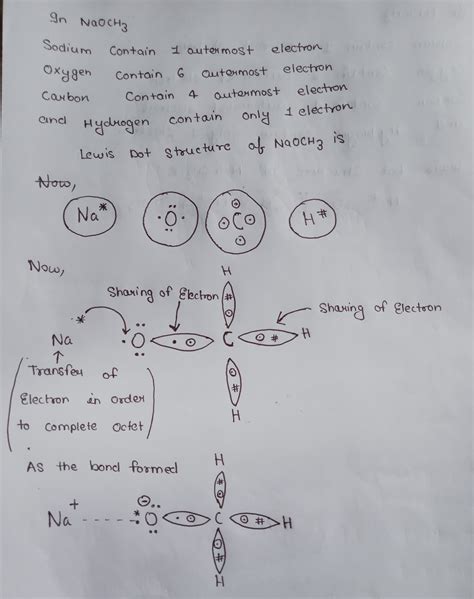 In NaOCH3
Sodium Contain 1 outermost electron
Oxygen Contain 6 outermost electron
Carbon Contain 4 outermost electron
and Hydrogen contain only 1 electron
Lewis Dot Structure of NaOCH3 is
Now,
Na* O C H#
Now,
H
Sharing of Electron #
Sharing of Electron
* Na O C # H
Transfer of
Electron in order
to complete Octet
#
H
As the bond formed
H
#
Na+ ----- * O − C # H
#
H